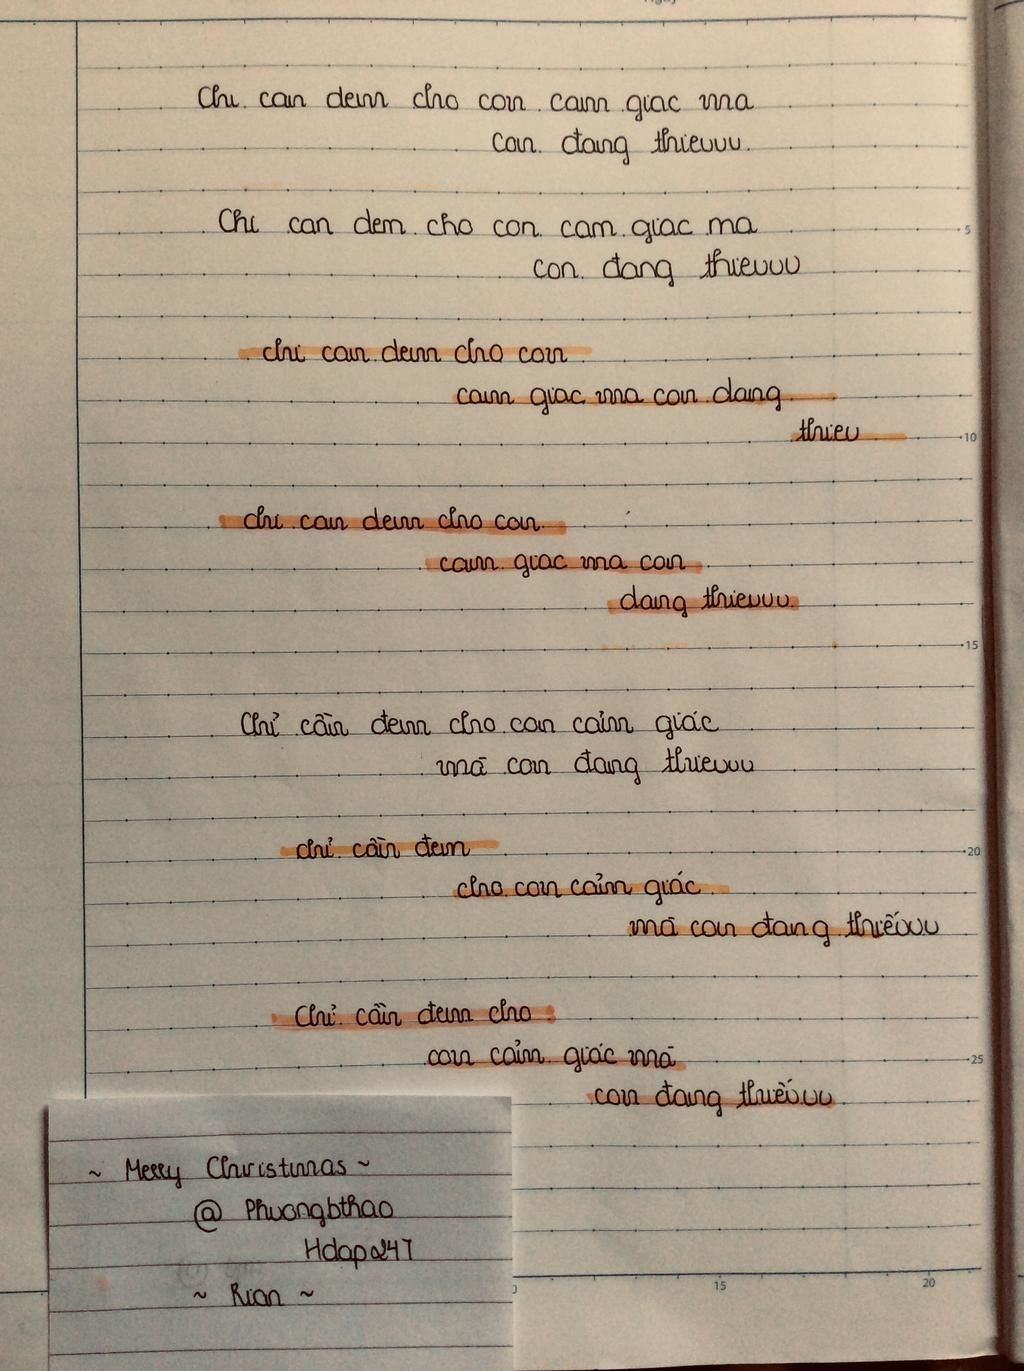 Chi can dem cho con cam giac ma
con đang thieuuu.
Chi can dem cho con cam giac ma
con đang thieuuu
chi can dem cho con
cam giac ma con dang
thieu
10
chi can dem cho con
cam giac ma con
dang thieuuu.
15
Chỉ cần đem cho con cảm giác
mà con đang thieuuu
chỉ cần đem
20
cho con cảm giác
mà con đang thiếuuu
Chỉ cần đem cho
con cảm giác mà
25
con đang thiếuuu
~ Merry Christmas ~
@ Phuongbthao
Hdap247
~ Rian ~
15 20